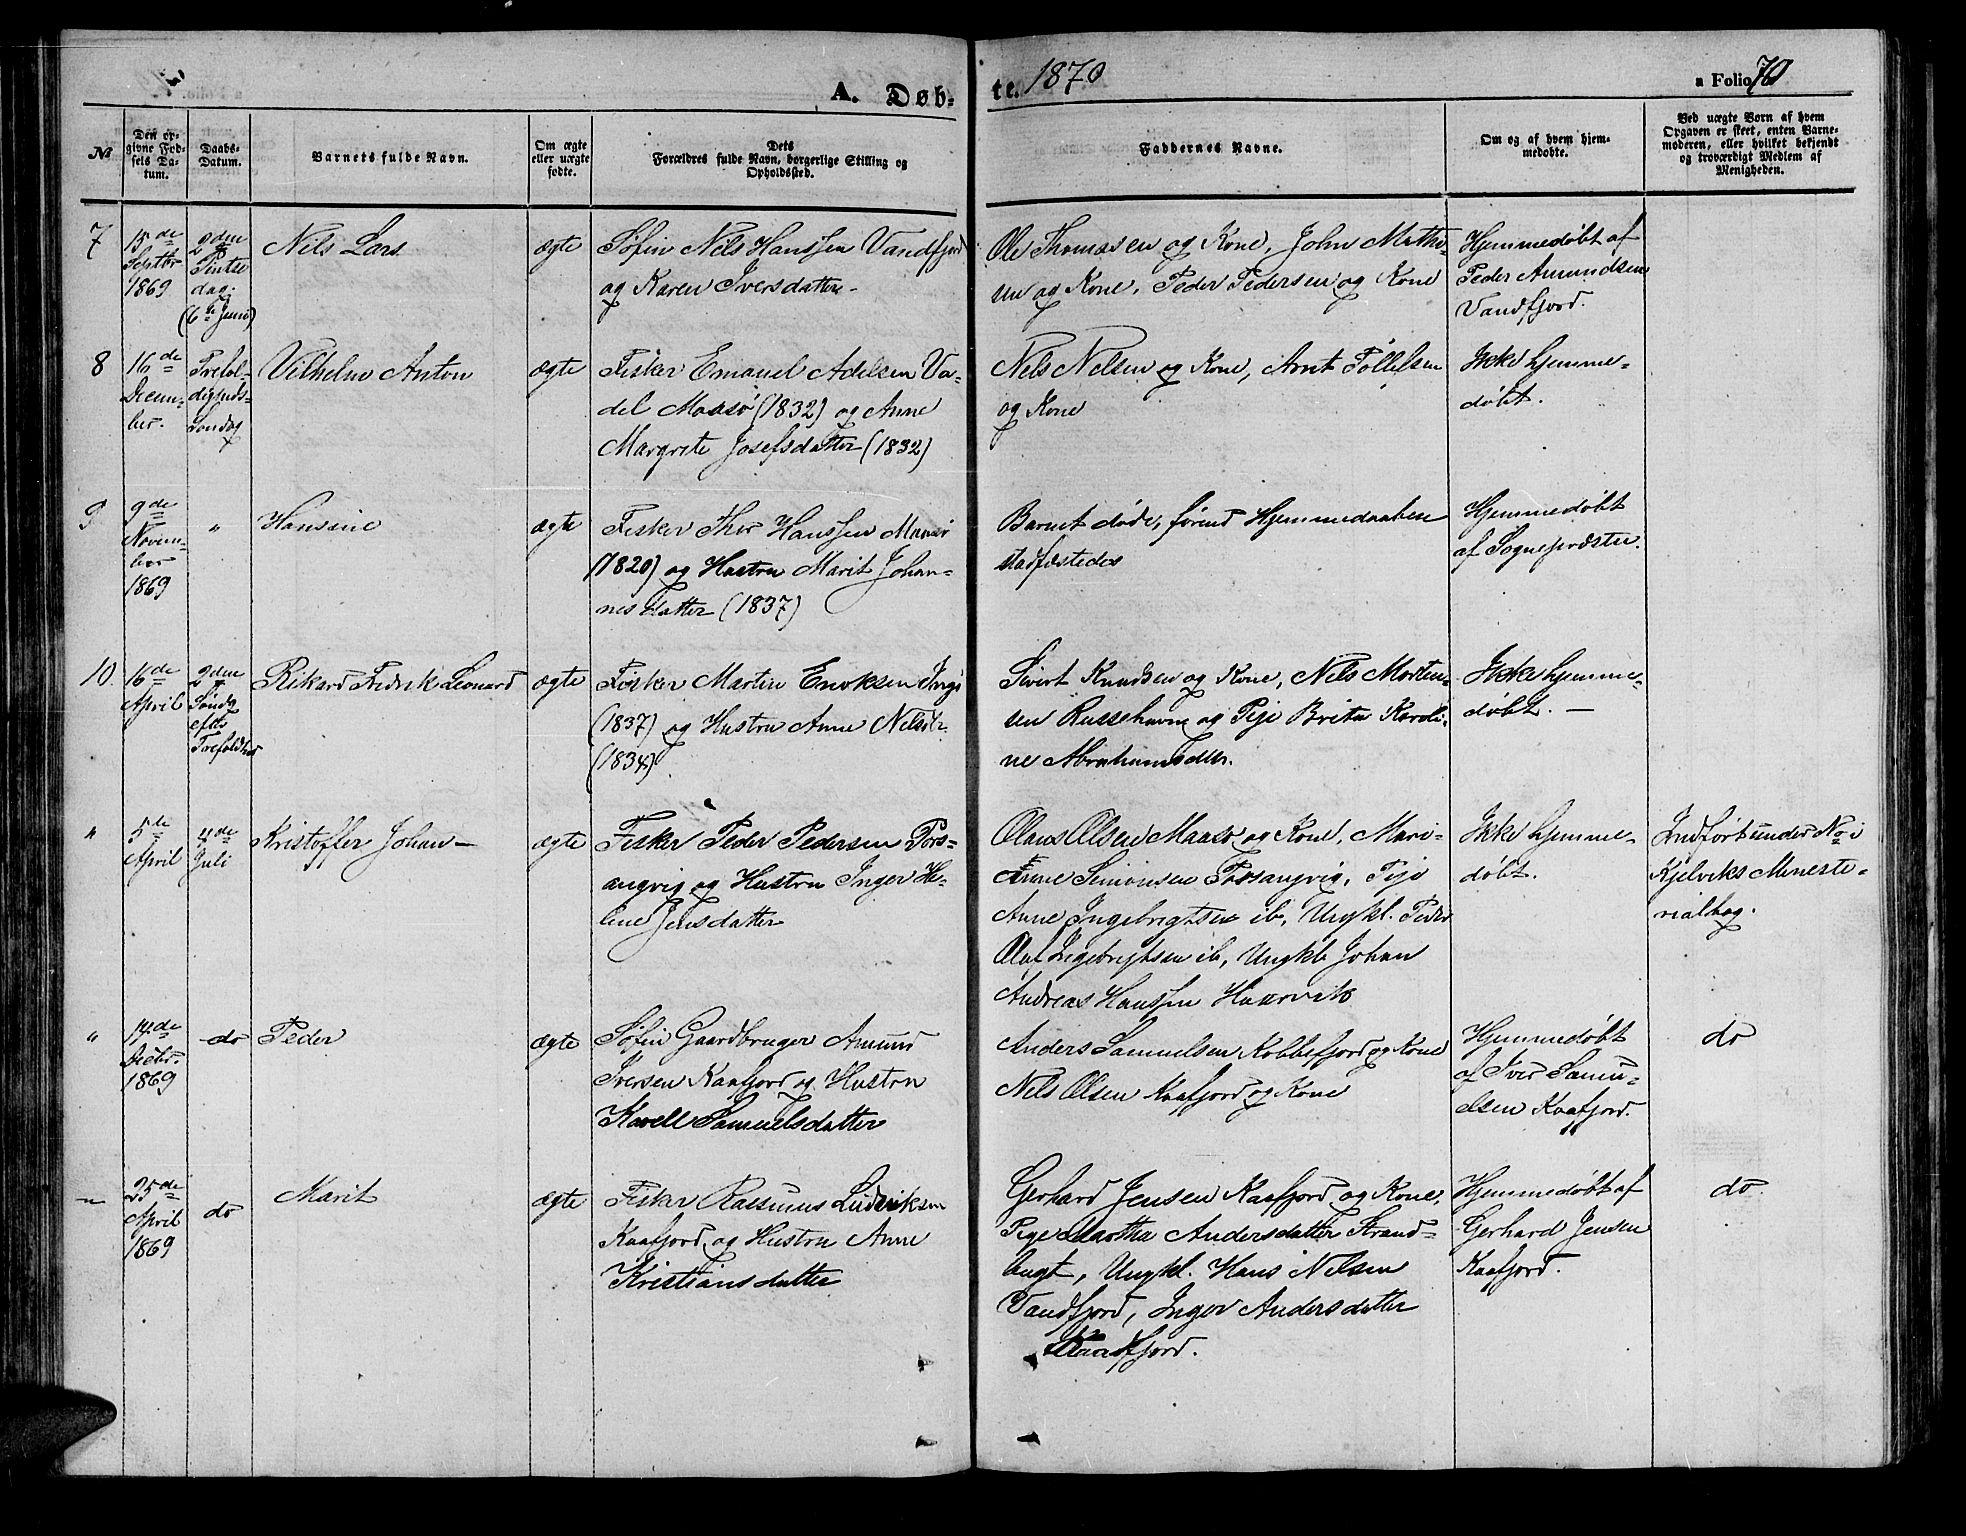 A. Døb-
te. 1870
a Folio 70
No
Den op-
givne Fød-
sels Da-
tum.
Daabs-
Datum.
Barnets fulde Navn.
Om ægte
eller uægte
fødte.
Dets
Forældres fulde Navn, borgerlige Stilling og
Opholdssted.
Faddernes Navne.
Om og af hvem hjem-
medøbte.
Ved uægte Børn af hvem
Opgaven er skeet, enten Barne-
moderen, eller hvilket bekjendt
og troværdigt Medlem af
Menigheden.
7
15de
Septbr
1869
2den
Pintse
dag.
(6te Juni)
Nels Lars
ægte
Søfin Nels Hanssen Vandfjord
og Karen Iversdatter
Ole Thomassen og Kone, John Mathi-
sen og Kone, Peder Pedersen og Kone
Hjemmedøbt af
Peder Amundsen
Vandfjord.
8
16de
Decem-
ber.
Trefol-
digheds-
Søndag
Vilhelm Anton
ægte
Fisker Emanuel Adelsen Va-
del Maasø (1832) og Anne
Margrete Josefsdatter (1832)
Nels Nelsen og Kone, Arnt Tollefsen
og Kone
Ikke hjemme-
døbt.
9
9de
Novem-
ber
1869
"
Hansine
ægte
Fisker Thor Hanssen Maasø
(1820) og Hustru Marit Johan-
nesdatter (1837)
Barnet døde, førend Hjemmedaaben
stadfæstedes
Hjemmedøbt
af Sognepræsten.
10
16de
April
2den
Sønd.
efter
Trefoldhed
Rikard Fredrik Leonard
ægte
Fisker Martin Enoksen Inga
(1837) og Hustru Anne Nelsdtr.
(1834)
Sivert Knudsen og Kone, Nels Morten-
sen Russehavn og Pige Brita Karoli-
ne Abrahamsdttr.
Ikke hjemme-
døbt. —
"
5te
April
4de
Juli
Kristoffer Johan —
ægte
Fisker Peder Pedersen Pors-
angvig og Hustru Inger He-
line Jensdatter
Olaus Olsen Maasø og Kone, Mari-
Anne Simonsen Porsangvig, Pige
Anne Ingebrigtsen ib, Ungkl. Peder
Olaf Ingebrigtsen ib, Ungkl. Johan
Andreas Hanssen Havrvik
Ikke hjemme-
døbt.
Indført under No i
Kjelviks Ministe-
rialbog.
"
14de
Decbr.
1869
do
Peder
ægte
Søfin Gaardbruger Amund
Iversen Kaafjord og Hustru
Karell Samuelsdatter
Anders Samuelsen Kobbefjord og Kone
Nels Olsen Kaafjord og Kone
Hjemmedøbt
af Iver Samu-
elsen Kaafjord.
do
"
25de
April
1869
do
Marit
ægte
Fisker Rasmus Ludviksen
Kaafjord og Hustru Anne
Kristiansdatter
Gerhard Jensen Kaafjord og Kone,
Pige Martha Andersdatter Strand-
bugt, Ungkl. Hans Nilsen
Vandfjord, Inger Andersdatter
Kaafjord.
Hjemmedøbt af
Gerhard Jensen
Kaafjord.
do.